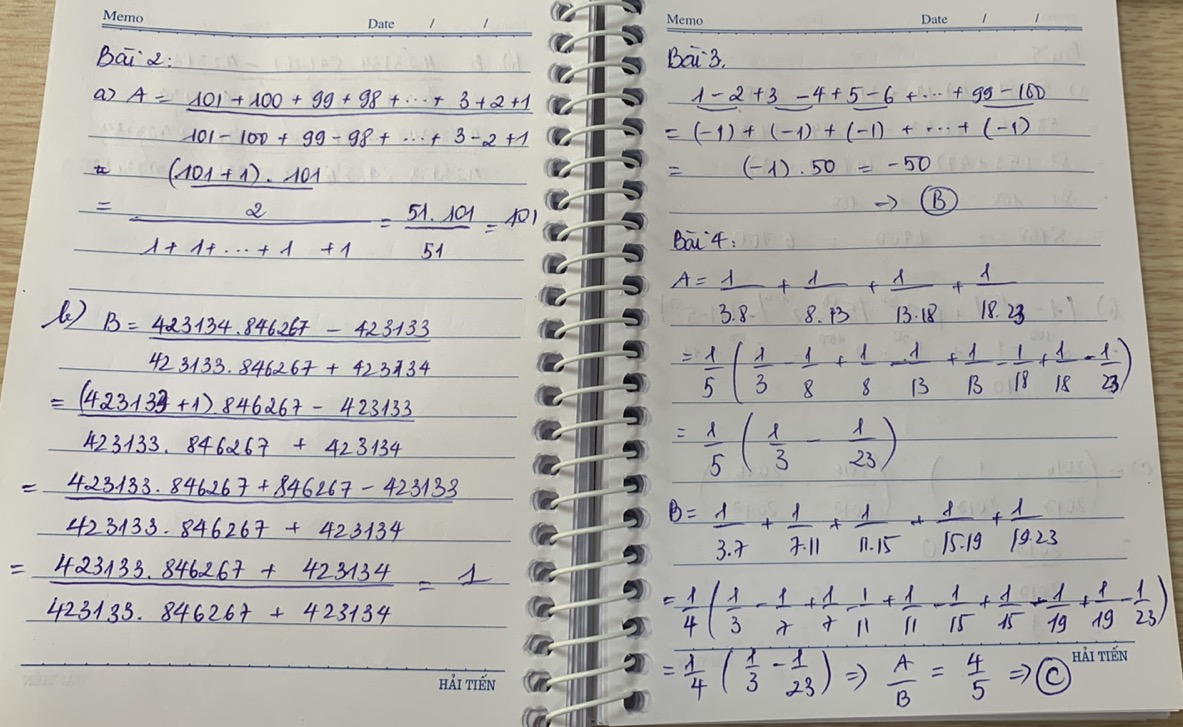 Memo Date / /
Bài 2:
a) A = 101 + 100 + 99 + 98 + ... + 3 + 2 + 1
101 - 100 + 99 - 98 + ... + 3 - 2 + 1
(101 + 1). 101
= 2 = 51. 101 = 101
1 + 1 + ... + 1 + 1 51
b) B = 423134.846267 - 423133
423133.846267 + 423134
= (423133 + 1).846267 - 423133
423133. 846267 + 423134
= 423133.846267 + 846267 - 423133
423133.846267 + 423134
= 423133.846267 + 423134 = 1
423133. 846267 + 423134
HẢI TIẾN
Memo Date / /
Bài 3.
1 - 2 + 3 - 4 + 5 - 6 + ... + 99 - 100
= (-1) + (-1) + (-1) + ... + (-1)
= (-1) . 50 = -50
→ B
Bài 4:
A = 1 + 1 + 1 + 1
3.8 8.13 13.18 18.23
= 1/5 ( 1/3 - 1/8 + 1/8 - 1/13 + 1/13 - 1/18 + 1/18 - 1/23 )
= 1/5 ( 1/3 - 1/23 )
B = 1 + 1 + 1 + 1 + 1
3.7 7.11 11.15 15.19 19.23
= 1/4 ( 1/3 - 1/7 + 1/7 - 1/11 + 1/11 - 1/15 + 1/15 - 1/19 + 1/19 - 1/23 )
= 1/4 ( 1/3 - 1/23 ) => A/B = 4/5 => C
HẢI TIẾN